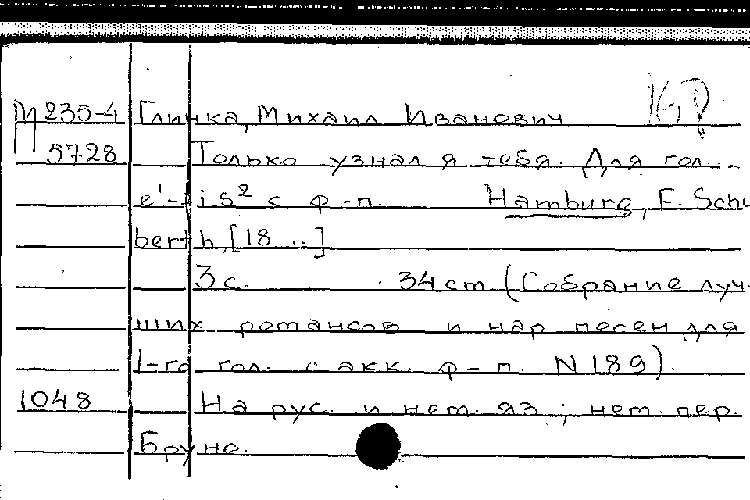 М 235-4 Глинка, Михаил Иванович
5728 Только узнал я тебя. Для гол.
e'-fis² с ф-п. Hamburg, F. Schu
berth, [18 ..]
3 с. 34 cm. (Собрание луч-
ших романсов и нар песен для
1-го гол. с акк. ф-п. N 189).
1048 На рус. и нем. яз; нем. пер.
Бруно.